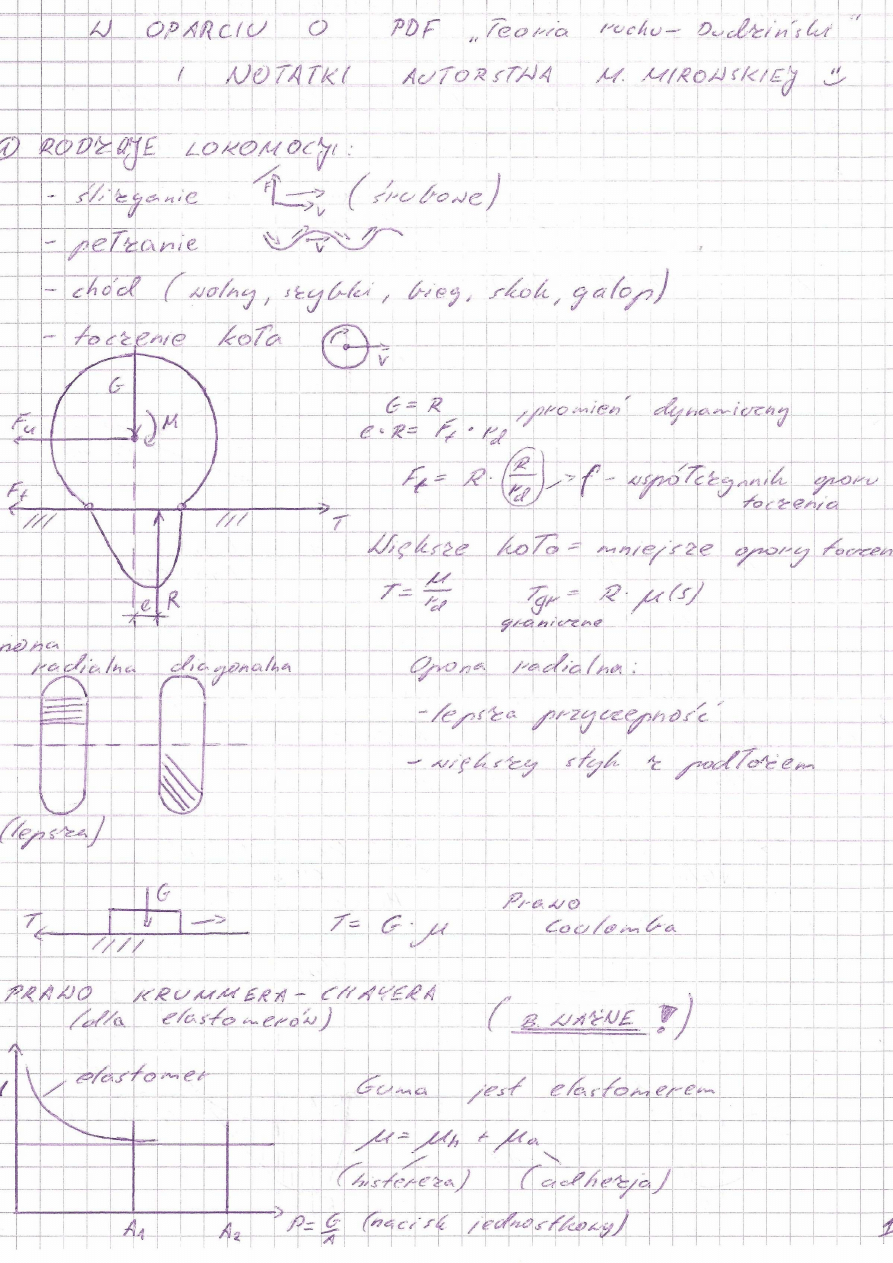 W OPARCIU O PDF „Teoria ruchu - Dudziński"
I NOTATKI AUTORSTWA M. MIROWSKIEJ
① RODZAJE LOKOMOCJI:
- ślizganie F v (śrubowe)
- pełzanie v
- chód (wolny, szybki, bieg, skok, galop)
- toczenie koła v
G
M
Fu
Ff
T
e R
G = R
e·R = Ff · rd , promień dynamiczny
Ff = R · (R/rd) → f - współczynnik oporu
toczenia
Większe koło = mniejsze opory toczen
T = M/rd Tgr = R · μ(s)
graniczne
radialna diagonalna
(lepsza)
Opona radialna:
- lepsza przyczepność
- większy styk z podłożem
G
T
T = G · μ
Prawo
Coulomba
PRAWO KRUMMERA - CHAYERA
(dla elastomerów)
(B. WAŻNE !)
elastomer
A1 A2
Guma jest elastomerem
μ = μh + μa
(histereza) (adhezja)
P = G/A (nacisk jednostkowy)
1